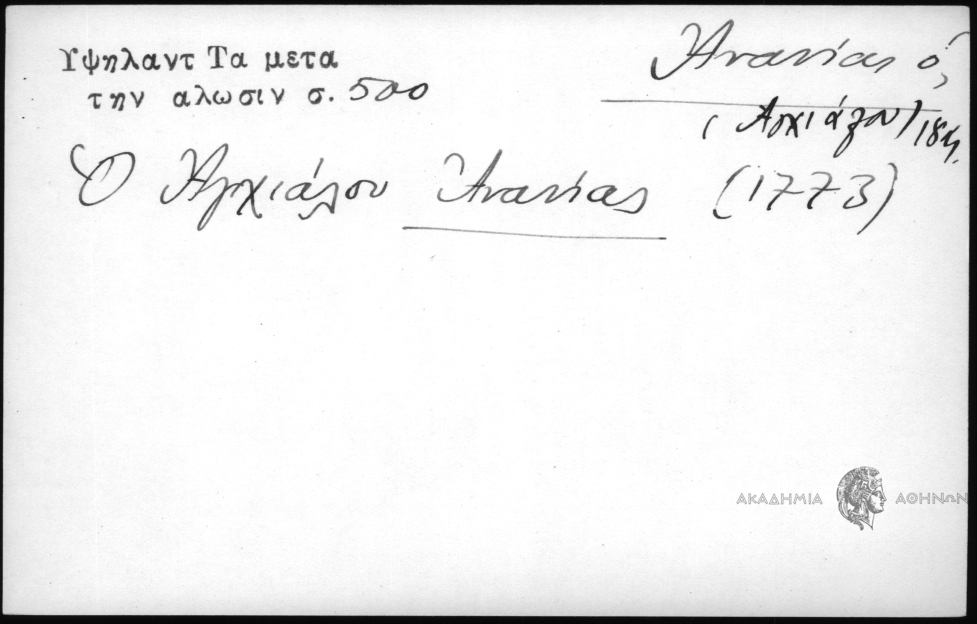 Υψηλαντ Τα μετα
την αλωσιν σ. 500
Ἀνανίας ὁ,
(Ἀγχιάλου)
Ὁ Ἀγχιάλου Ἀνανίας (1773)
ΑΚΑΔΗΜΙΑ ΑΘΗΝΩΝ